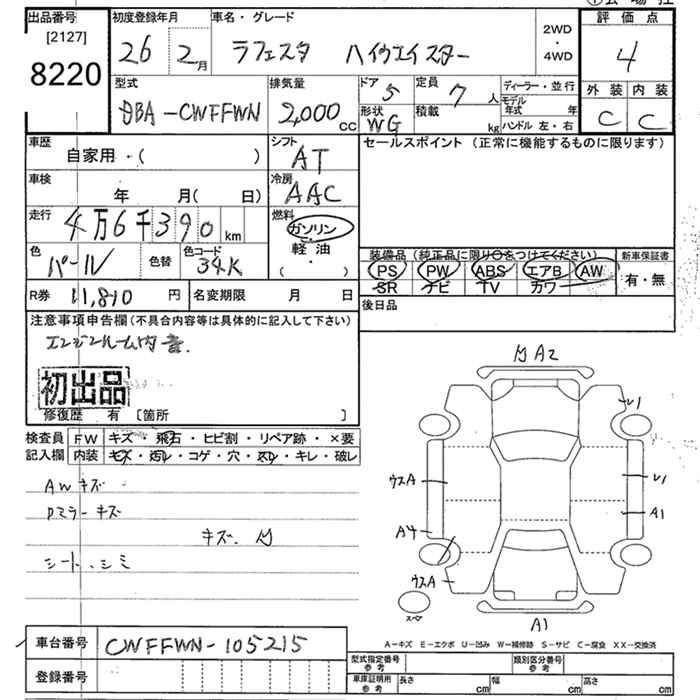 出品番号 初度登録年月 車名・グレード 評価点
[2127]
8220
26 2月 ラフェスタ ハイウエイスター 2WD・4WD 4
型式 排気量 ドア 定員 ディーラー・並行 外装 内装
DBA-CWFFWN 2,000cc 5 7人 モデル年式 年 C C
形状 積載
WG kg ハンドル 左・右
車歴 シフト セールスポイント (正常に機能するものに限ります)
自家用・( ) AT
車検 冷房
年 月( 日) AAC
走行 燃料
4万6千390km ガソリン
軽油
・( )
装備品 (純正品に限り○をつけてください) 新車保証書
色 色替 色コード
パール 34K
PS PW ABS エアB AW 有・無
SR ナビ TV カワ
R券 11,810円 名変期限 月 日
後日品
注意事項申告欄 (不具合内容等は具体的に記入して下さい)
エンジンルーム内
初出品
修復歴 有 [箇所 ]
検査員 FW キズ・飛石・ヒビ割・リペア跡・×要
記入欄 内装 キズ・汚レ・コゲ・穴・スレ・キレ・破レ
AWキズ
Dミラーキズ
キズ、
シート、シミ
A2
レ1
ウスA レ1
A1
A4
ウスA
スペア
A1
A-キズ E-エクボ U-凹み W-補修跡 S-サビ C-腐食 XX-交換済
車台番号 CWFFWN-105215
型式指定番号 参考 類別区分番号 参考
登録番号
車庫証明用 参考 長さ cm 幅 cm 高さ cm